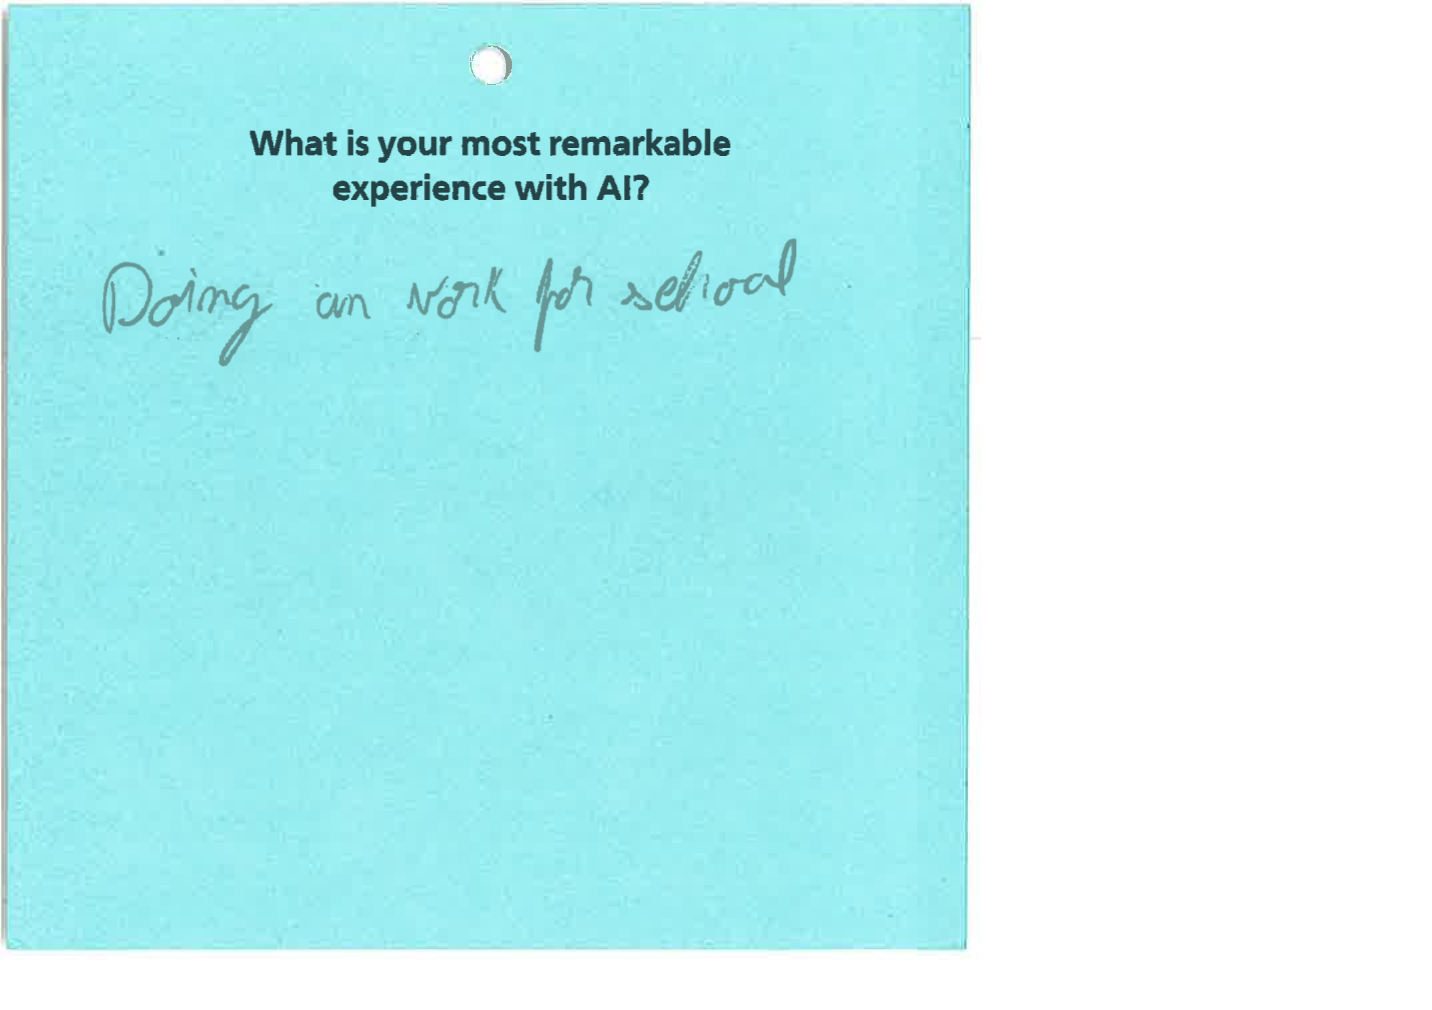 What is your most remarkable
experience with AI?
Doing an work for school